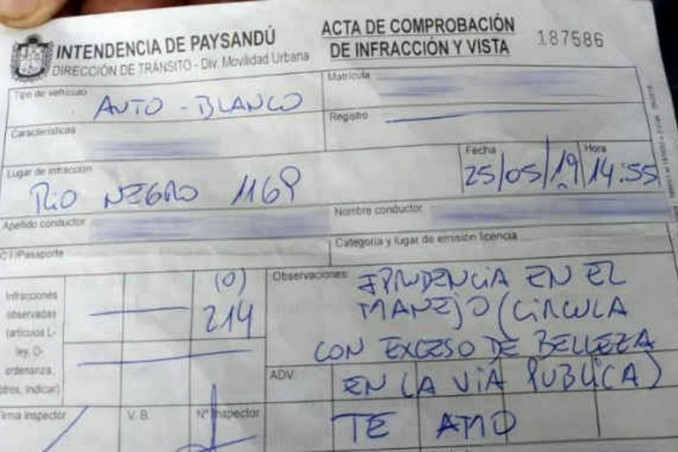 INTENDENCIA DE PAYSANDÚ
DIRECCIÓN DE TRÁNSITO - Div. Movilidad Urbana
ACTA DE COMPROBACIÓN
DE INFRACCIÓN Y VISTA
187586
Tipo de vehículo
AUTO - BLANCO
Matrícula
Registro
Características
Lugar de infracción
RIO NEGRO 1169
Fecha
25/05/19
Hora
14:55
Apellido conductor
Nombre conductor
C I/Pasaporte
Categoría y lugar de emisión licencia
Infracciones
observadas
(artículos L-
ley, O-
ordenanza,
otros, indicar)
(O)
214
Observaciones:
IPRUDENCIA EN EL
MANEJO (CIRCULA
CON EXCESO DE BELLEZA
EN LA VIA PUBLICA)
ADV.
TE AMO
Firma inspector
V. B.
Nº Inspector